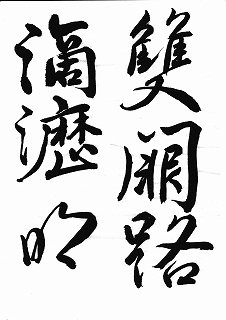 雙闕路
滴瀝明